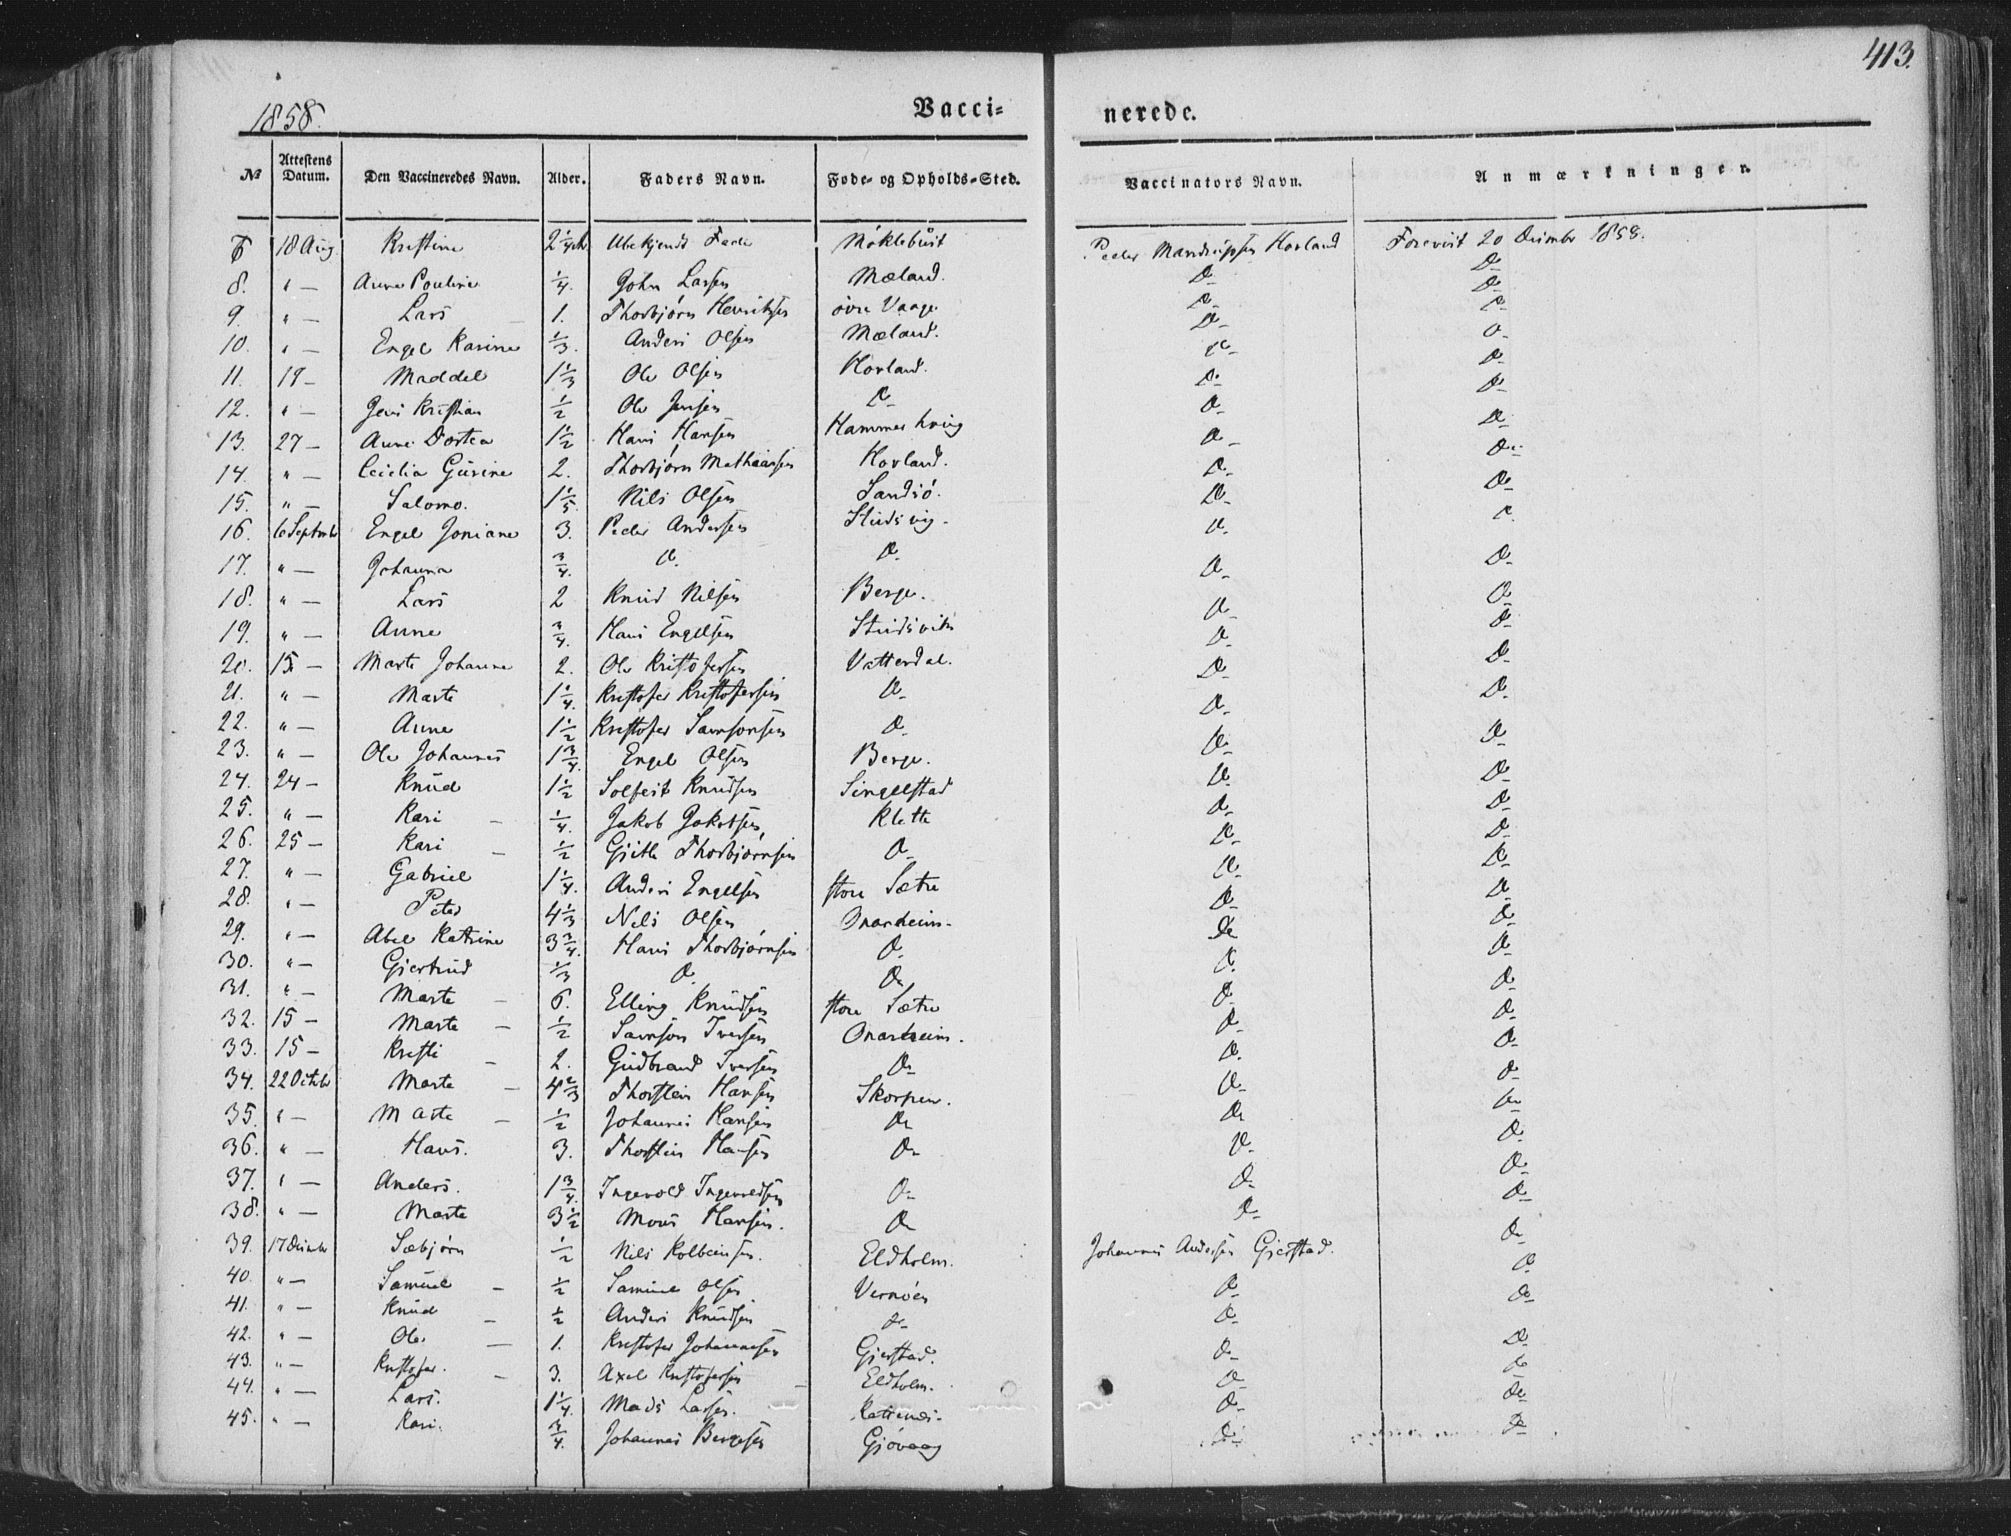 413.
1858.
Vacci= nerede.
№ Attestens Datum. Den Vaccineredes Navn. Alder. Faders Navn. Føde- og Opholds-Sted. Vaccinators Navn. Anmærkninger.
18 Aug. Kristine 2 1/4 Ubekjendt Fader Møklebust Peder Mandrupsen Hovland Forevist 20 Desember 1858.
8. " — Anne Pouline 1/4. John Larsen Mæland. D- D-
9. " — Lars 1. Thorbjørn Henriksen övre Vaage D- D-
10. " — Engel Karine 1/3. Anders Olsen Mæland. D- D-
11. 19 — Maddel 1 1/3 Ole Olsen Hovland. D- D-
12. " — Jens Kristian 1/2 Ole Jensen D- D- D-
13. 27 — Anne Dortea 1 1/2 Hans Hansen Hammerhoug D- D-
14. " — Cecilia Gurine 2. Thorbjørn Mathiasen Hovland. D- D-
15. " — Salomo. 1 1/5 Nils Olsen Sandsö. D- D-
16. 6 Septmbr Engel Joniane 3. Peder Andersen Studsvig. D- D-
17. " — Johanna 3/4. D- D- D- D-
18. " — Lars 2 Knud Nilsen Berge. D- D-
19. " — Anne 3/4. Hans Engelsen Studsvik D- D-
20. 15 — Marte Johanne 2. Ole Kristofersen Vatterdal. D- D-
21. " — Marte 1 1/4. Kristofer Kristofersen D- D- D-
22. " — Anne 1 1/2 Kristofer Samsonsen D- D- D-
23. " — Ole Johannes 1 3/4. Engel Olsen Berge. D- D-
24. 24 — Knud 1 1/2 Solfest Knudsen Singelstad D- D-
25. " — Kari 1/4. Jakob Jakobsen Klette D- D-
26. 25 — Kari 1/2 Gjitle Thorbjørnsen D- D- D-
27. " — Gabriel 1 1/4. Anders Engelsen store Sætre D- D-
28. " — Peter 4 1/3 Nels Olsen Onarheim. D- D-
29. " — Abel Katrine 3 3/4. Hans Thorbjørnsen D- D- D-
30. " — Gjertrud 1/3 D- D- D- D-
31. " — Marte 6. Elling Knudsen store Sætre D- D-
32. 15 — Marte 1/2 Samson Iversen Onarheim. D- D-
33. 15 — Kristi 2. Gudbrand Iversen D- D- D-
34. 22 Octobr Marte 4 2/3 Thorstein Hansen Skorpen. D- D-
35. " — Marte 1/2 Johannes Hansen D- D- D-
36. " — Hans. 3. Thorstein Hansen D- D- D-
37. " — Anders. 1 3/4. Ingevold Ingevoldsen D- D- D-
38. " — Marte 3 1/2 Mons Hansen. D- D- D-
39. 17 Desembr Sæbjørn 1/2 Nils Kolbeinsen. Eldholm. Johannes Andersen Gjerstad. D-
40. " — Samuel 1/2 Samuel Olsen Vernöen D- D-
41. " — Knud 1/2 Anders Knudsen D- D- D-
42. " — Ole. 1. Kristofer Johannesen Gjerstad. D- D-
43. " — Kristofer. 3. Axel Kristofersen Eldholm. D- D-
44. " — Lars. 1 1/4. Mads Larsen. D- D-
45. " — Kari. 3/4. Johannes Bergesen Gjövaag D- D-